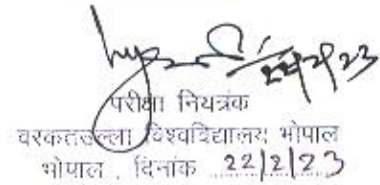 22/2/23
परीक्षा नियत्रंक
वरकतउल्ला विश्वविद्यालय भोपाल
भोपाल , दिनांक 22/2/23